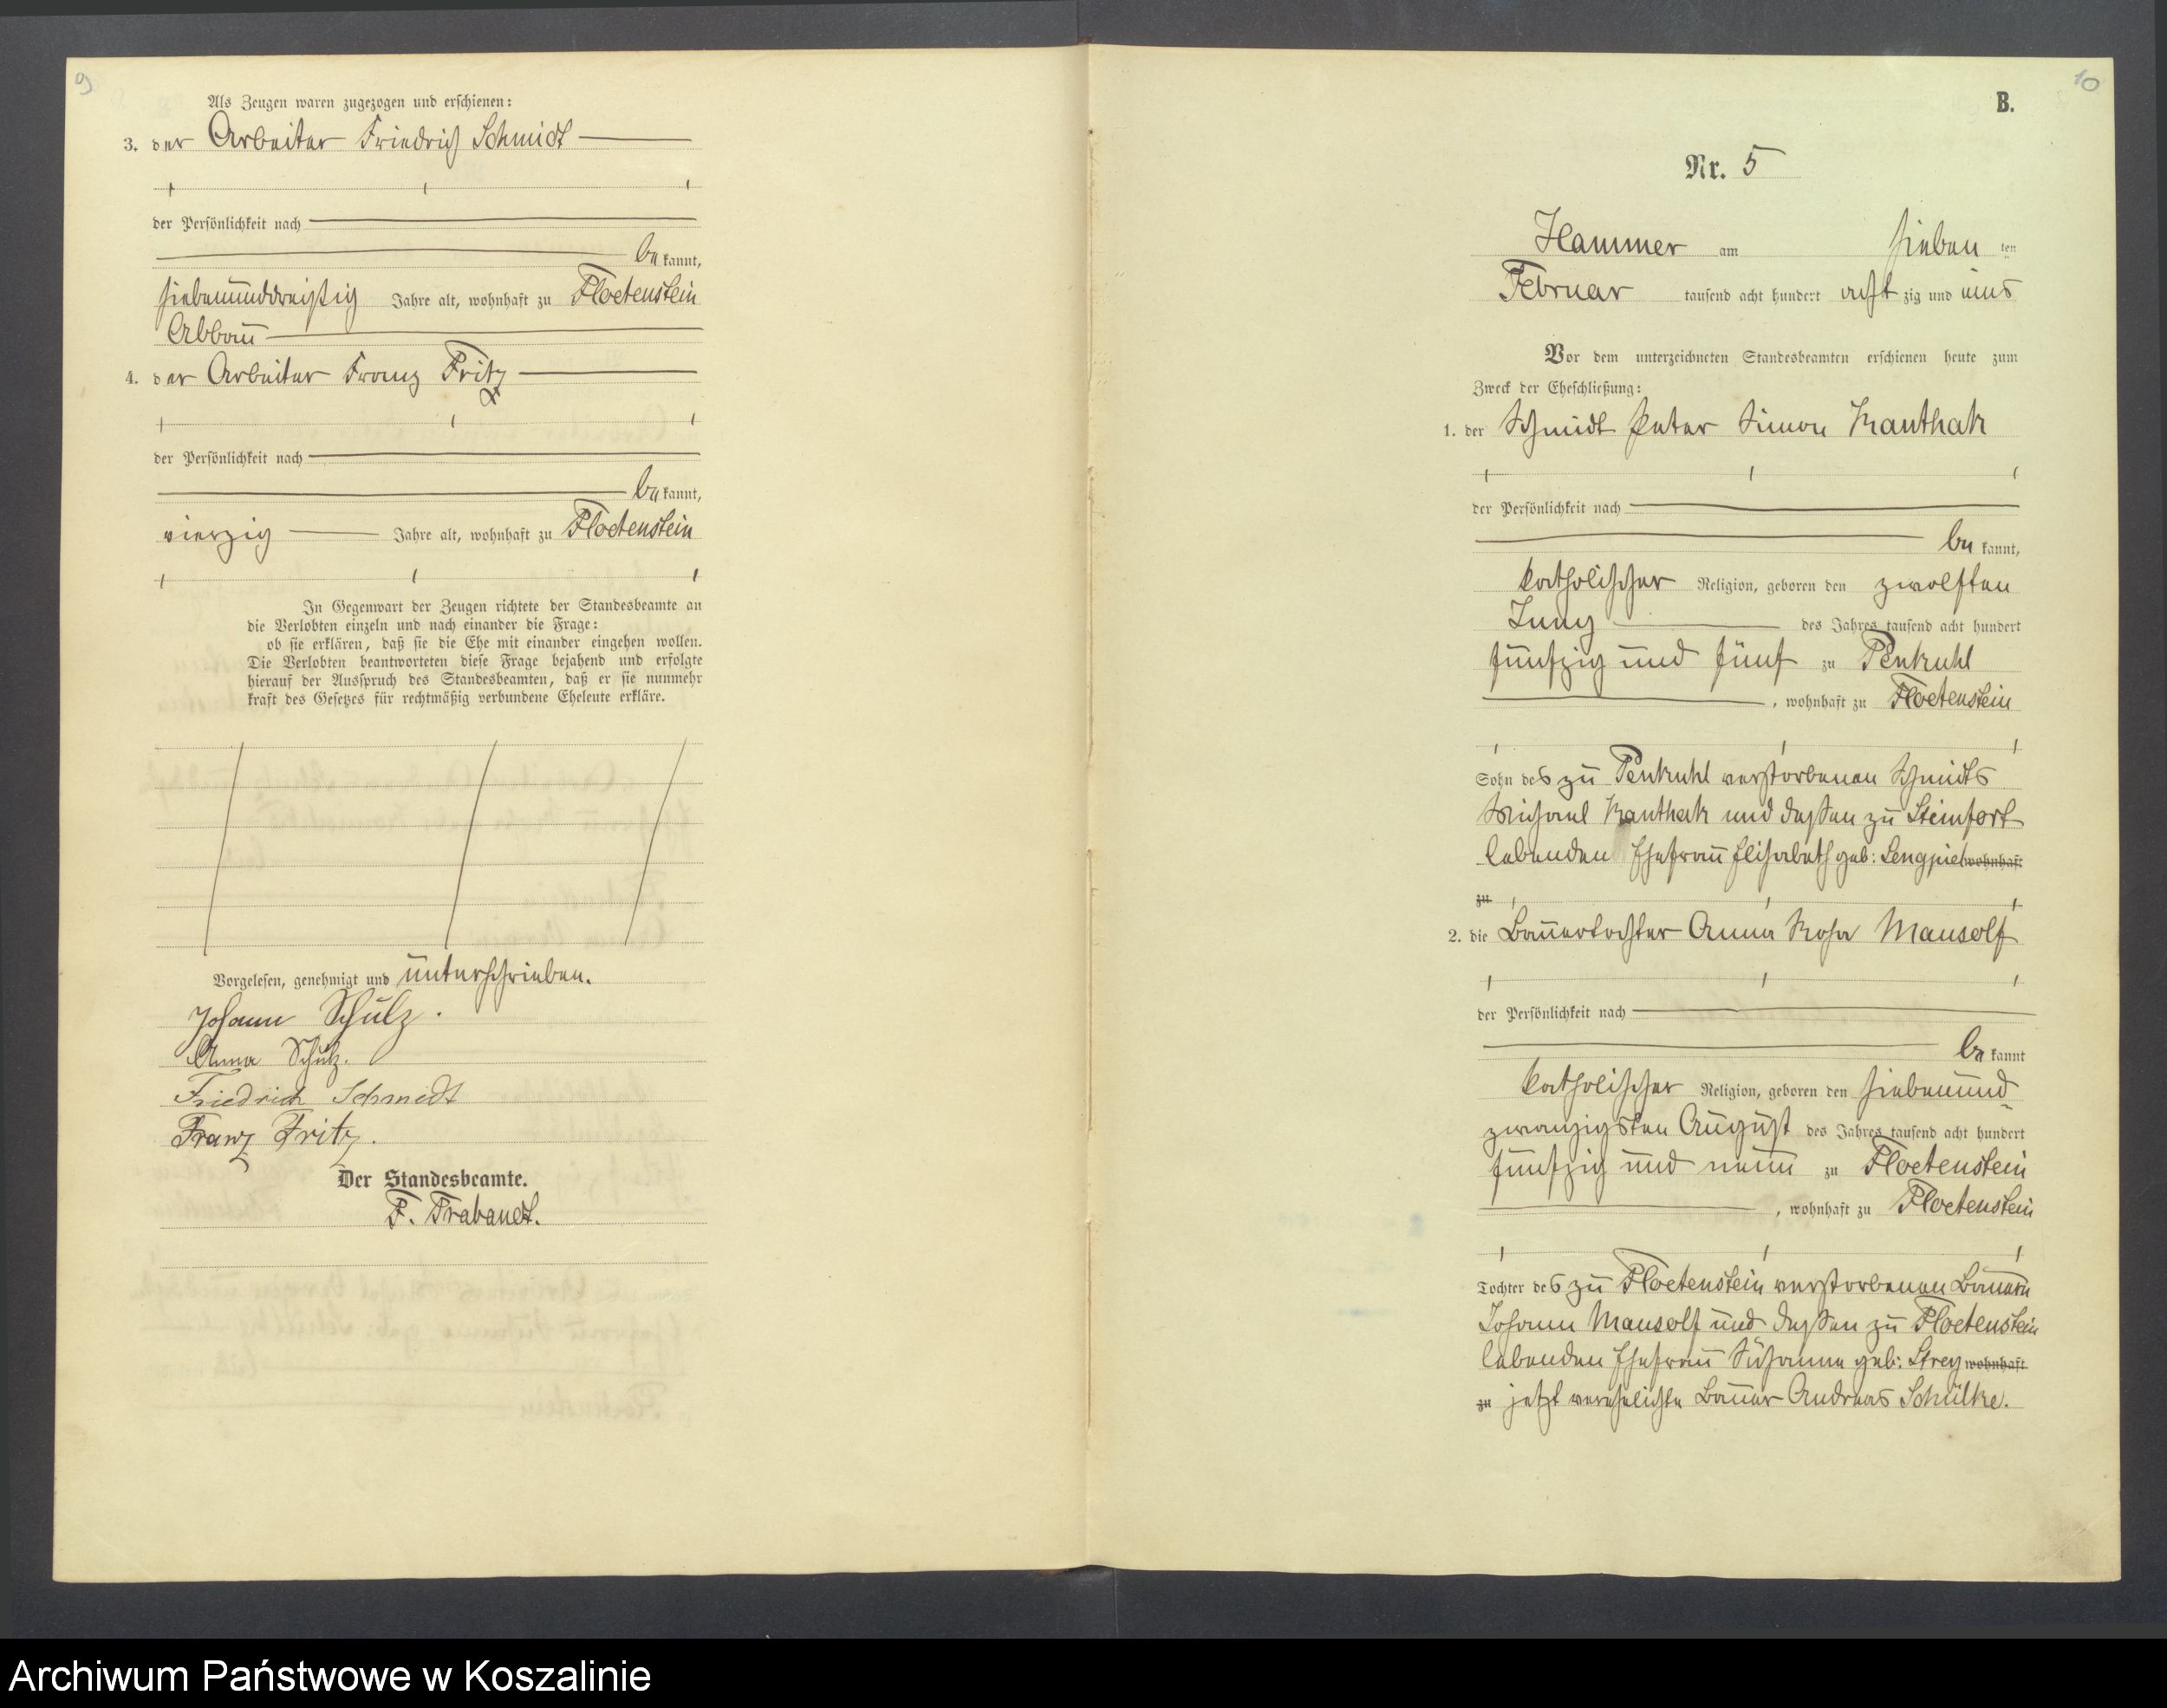 9
Als Zeugen waren zugezogen und erschienen:
3. der Arbeiter Friedrich Schmidt
der Persönlichkeit nach
be kannt,
siebenunddreißig Jahre alt, wohnhaft zu Floetenstein
Abbau
4. der Arbeiter Franz Fritz
der Persönlichkeit nach
be kannt,
vierzig Jahre alt, wohnhaft zu Floetenstein
In Gegenwart der Zeugen richtete der Standesbeamte an
die Verlobten einzeln und nach einander die Frage:
ob sie erklären, daß sie die Ehe mit einander eingehen wollen.
Die Verlobten beantworteten diese Frage bejahend und erfolgte
hierauf der Ausspruch des Standesbeamten, daß er sie nunmehr
kraft des Gesetzes für rechtmäßig verbundene Eheleute erkläre.
Vorgelesen, genehmigt und unterschrieben.
Johann Schulz.
Anna Schulz.
Friedrich Schmidt
Franz Fritz.
Der Standesbeamte.
F. Trabandt.
10
B.
Nr. 5
Hammer am sieben ten
Februar tausend acht hundert acht zig und eins
Vor dem unterzeichneten Standesbeamten erschienen heute zum
Zweck der Eheschließung:
1. der Schmidt Peter Simon Kanthak
der Persönlichkeit nach
be kannt,
katholischer Religion, geboren den zwölften
Juny des Jahres tausend acht hundert
fünfzig und fünf zu Penkuhl
, wohnhaft zu Floetenstein
Sohn des zu Penkuhl verstorbenen Schmidts
Michael Kanthak und dessen zu Steinfort
lebenden Ehefrau Elisabeth geb: Lengpiel wohnhaft
zu
2. die Bauertochter Anna Rosa Mausolf
der Persönlichkeit nach
be kannt
katholischer Religion, geboren den siebenund
zwanzigsten August des Jahres tausend acht hundert
fünfzig und neun zu Floetenstein
, wohnhaft zu Floetenstein
Tochter des zu Floetenstein verstorbenen Bauern
Johann Mausolf und dessen zu Floetenstein
lebenden Ehefrau Susanna geb: Strey wohnhaft
zu jetzt verehelichte Bauer Andreas Schülke.
Archiwum Państwowe w Koszalinie